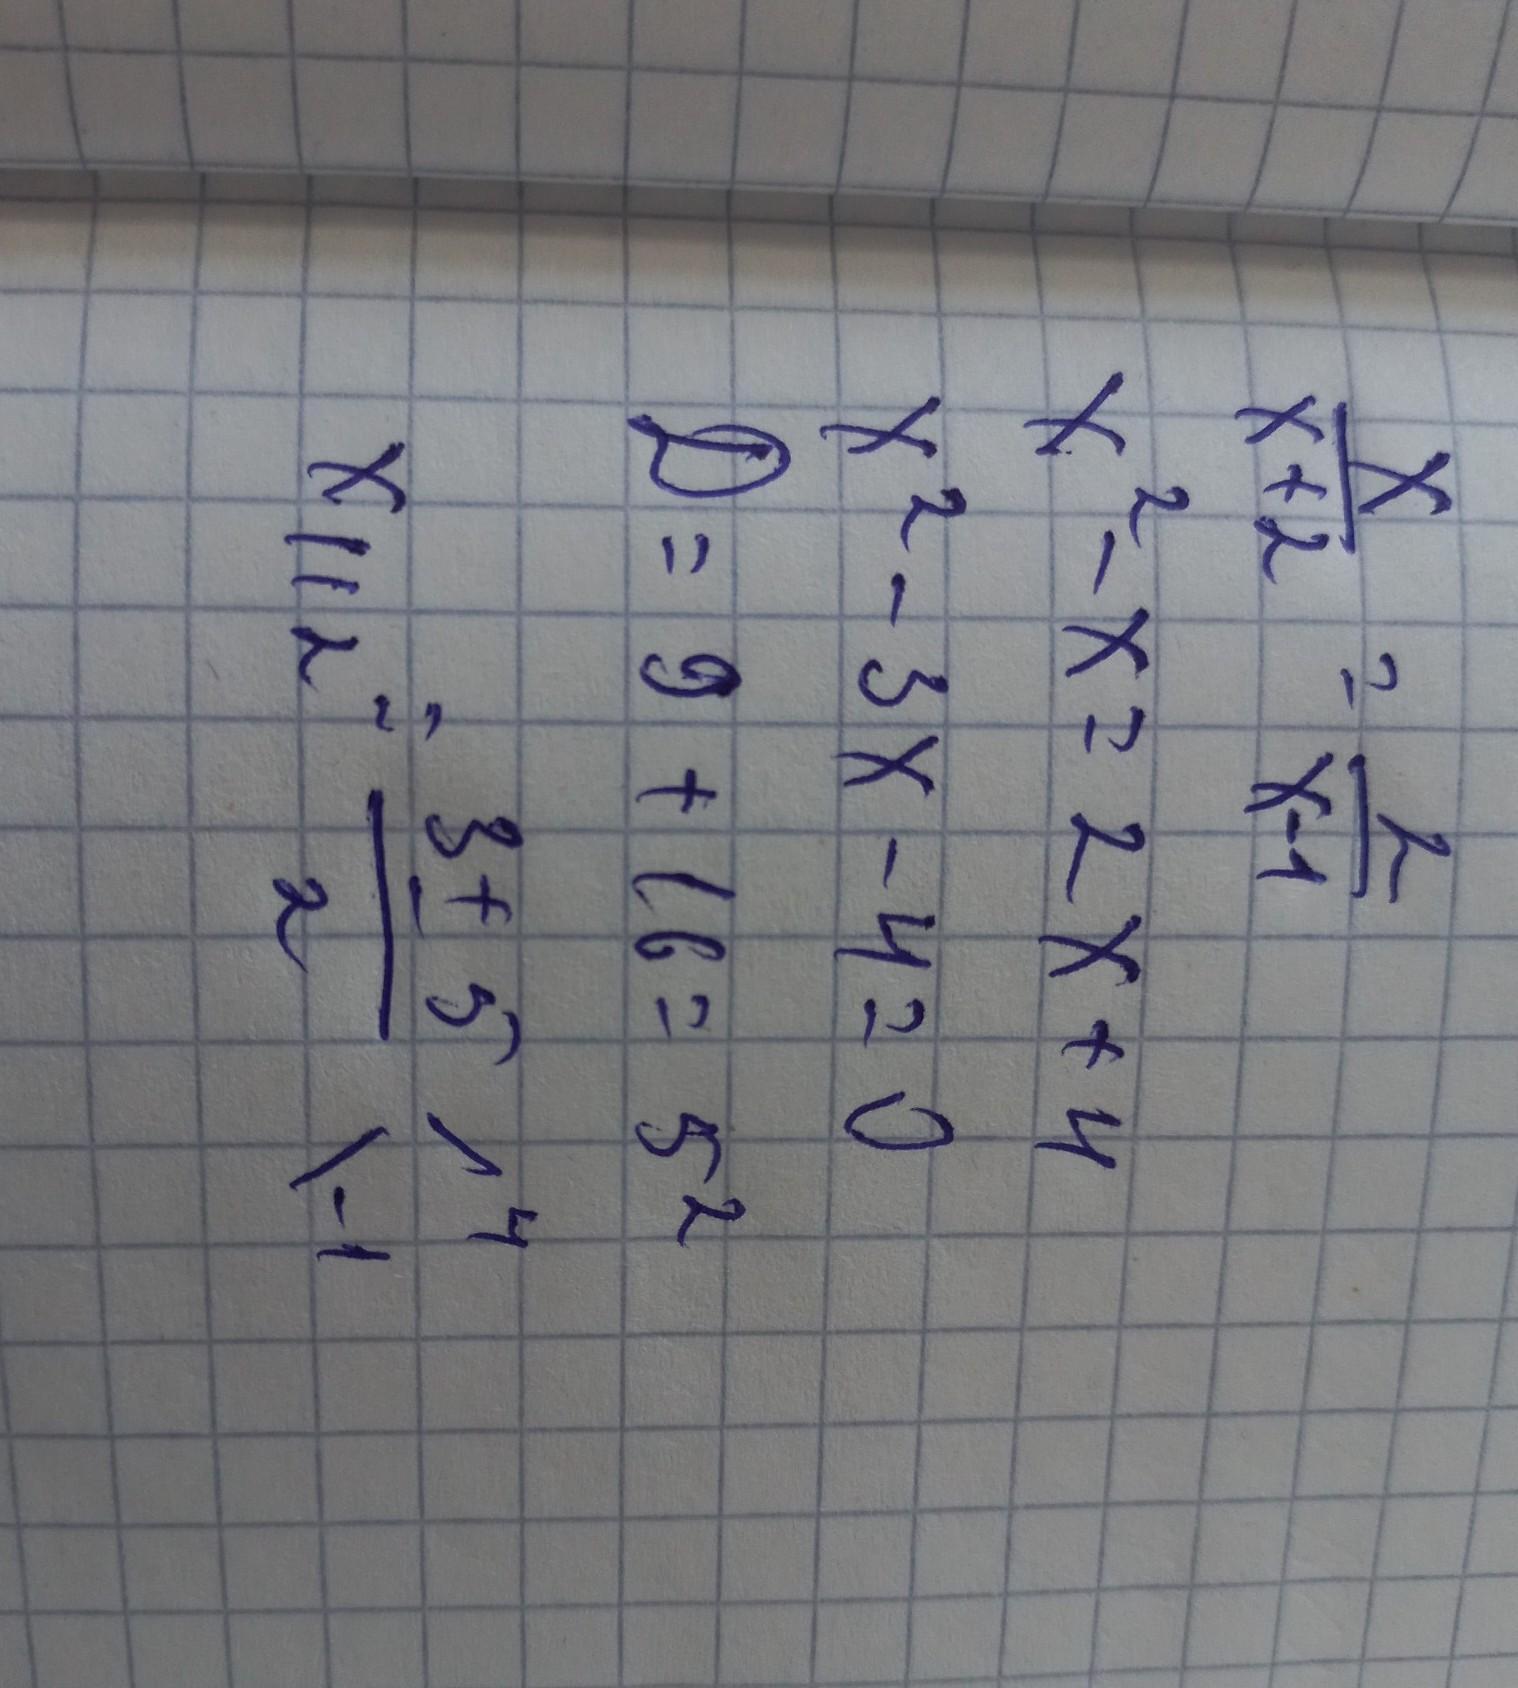 x/(x+2) = 2/(x-1)
x² - x = 2x + 4
x² - 3x - 4 = 0
D = 9 + 16 = 5²
x₁,₂ = (3 ± 5)/2 4
-1